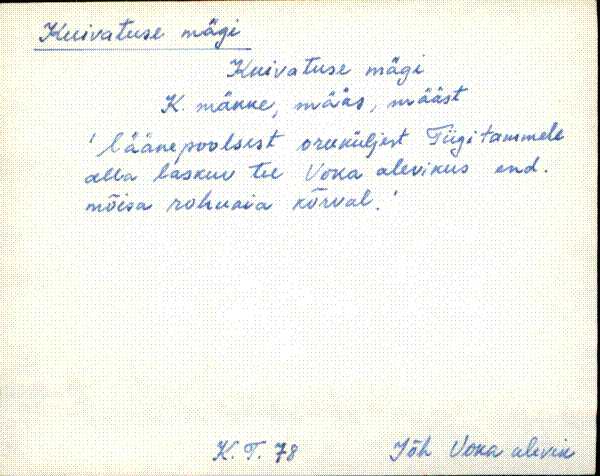 Kuivatuse mägi
Kuivatuse mägi
K. mäkke, määs, määst
'läänepoolsest oruküljest Tiigitammele
alla laskuv tee Voka alevikus end.
mõisa rohuaia kõrval.'
K. T. 78 Jõh Voka alevik